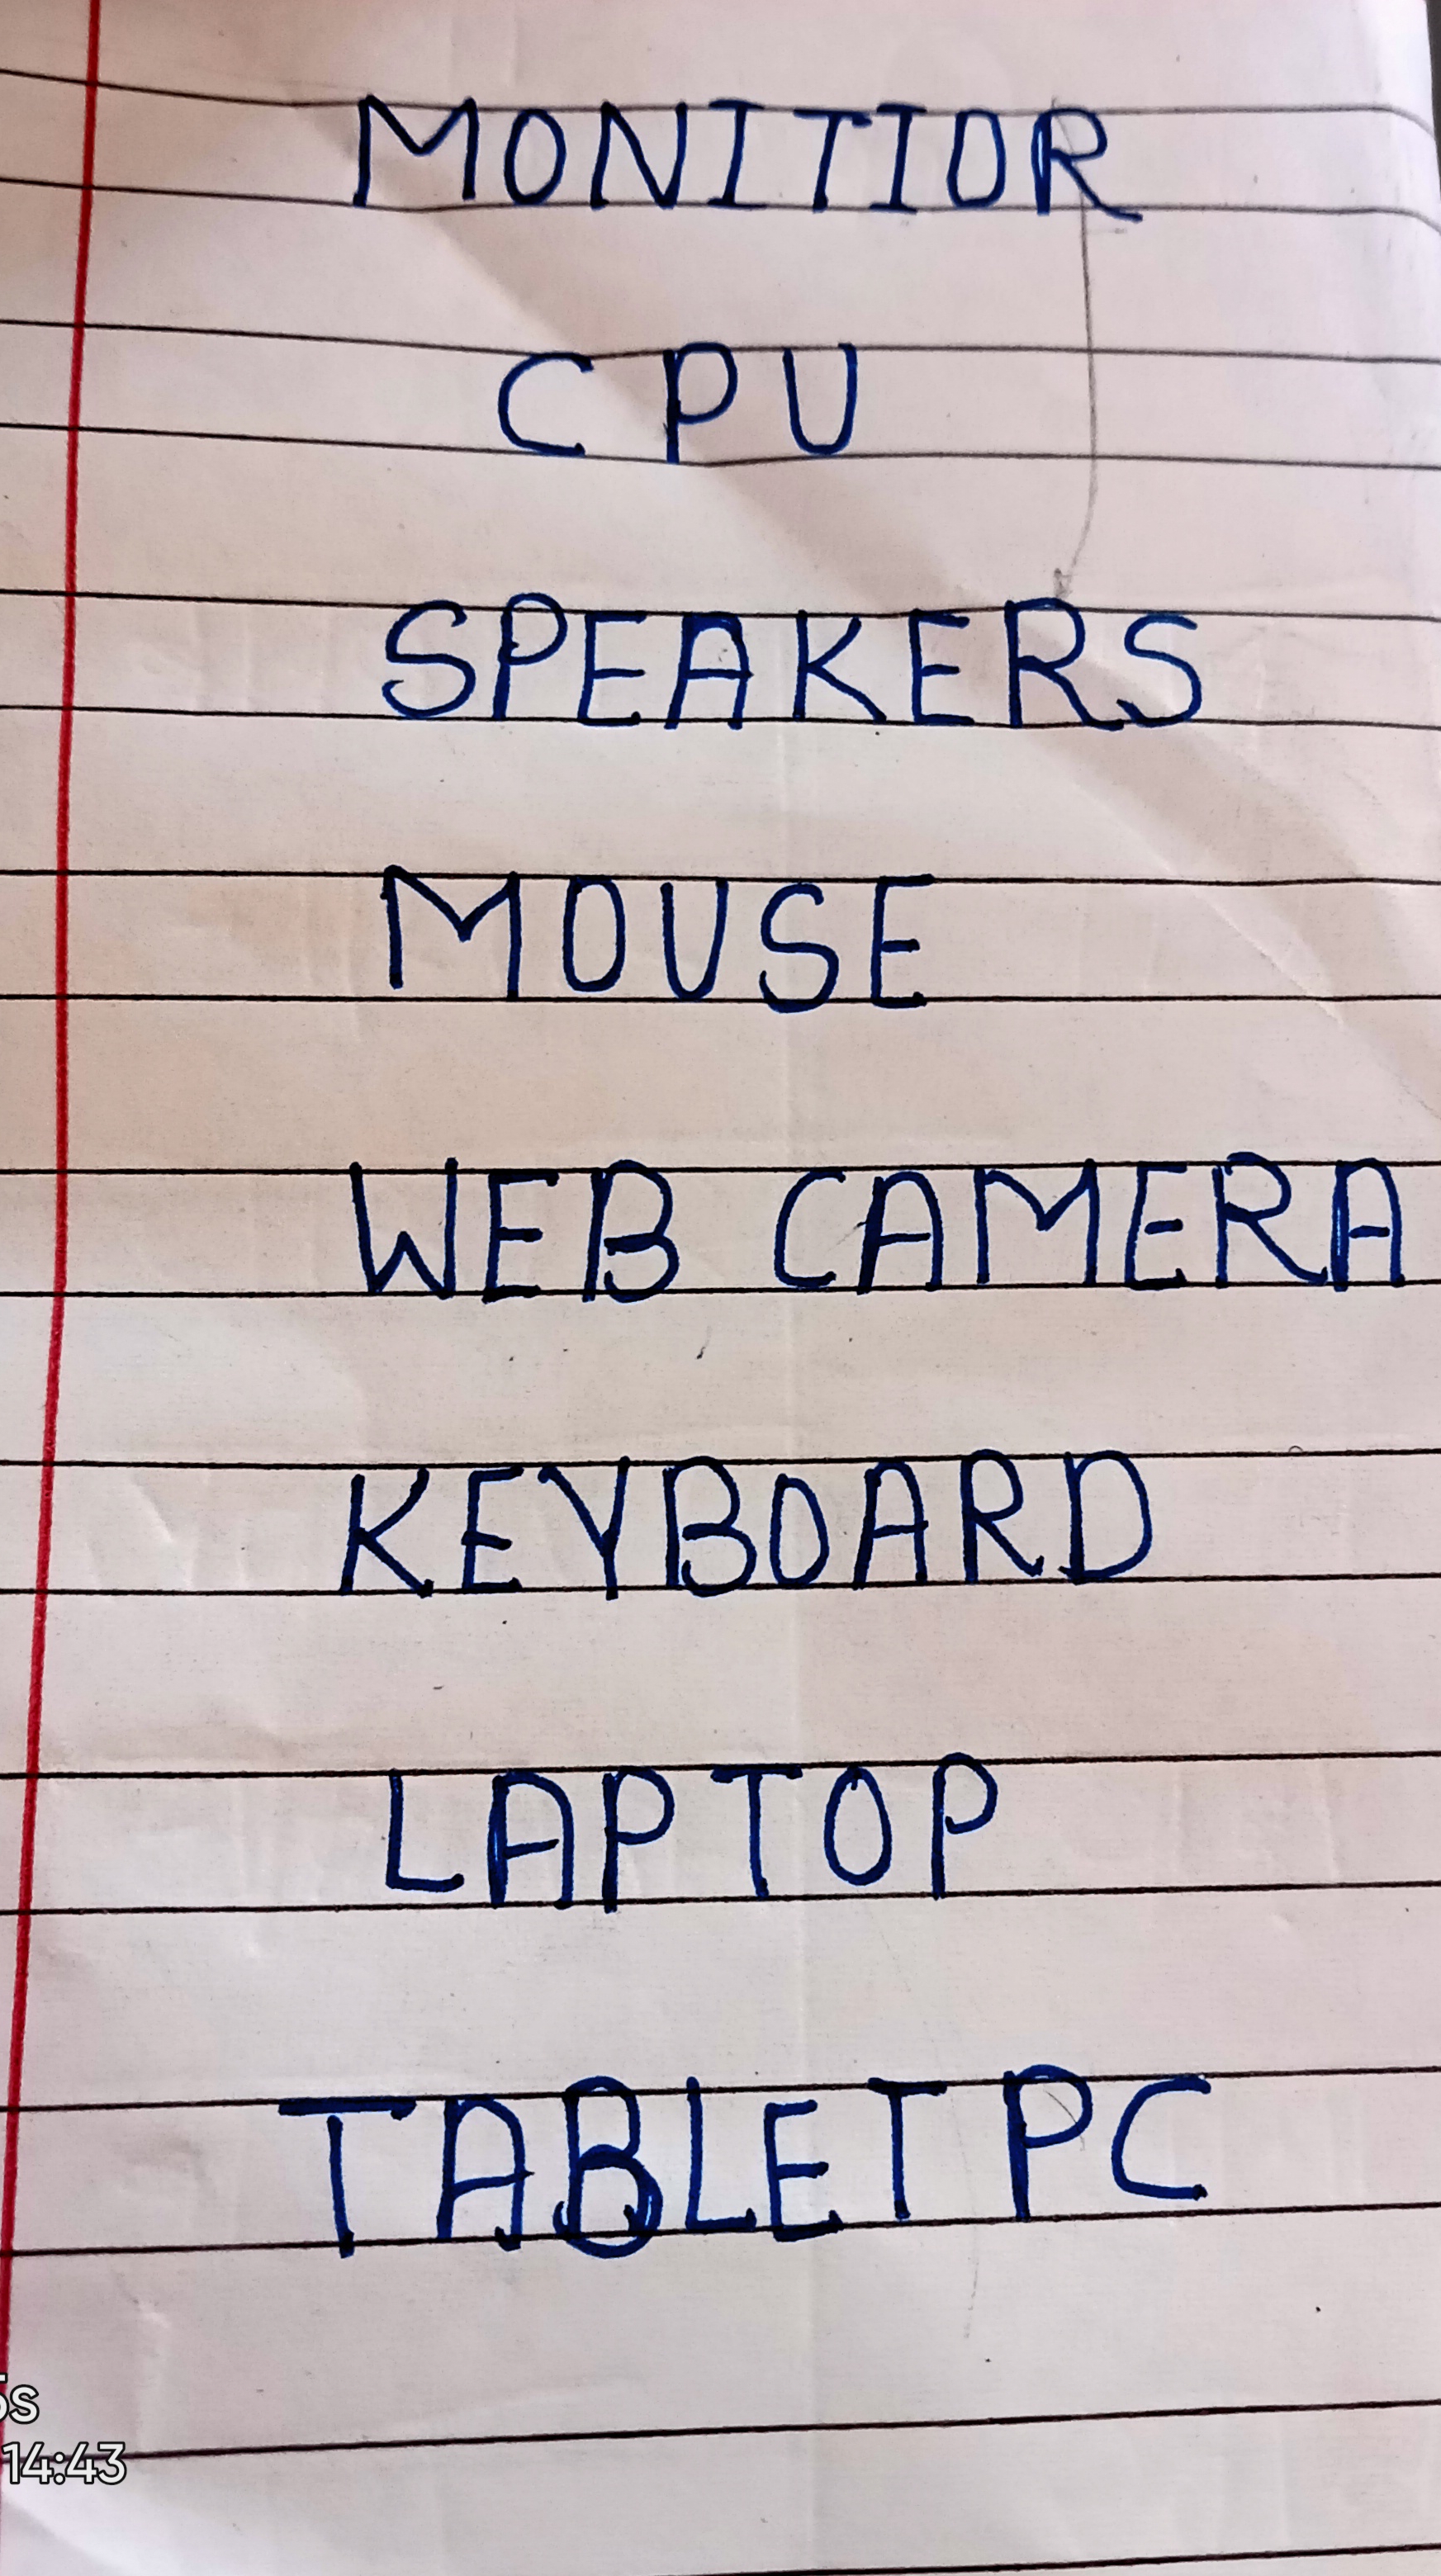 MONITIOR
CPU
SPEAKERS
MOUSE
WEB CAMERA
KEYBOARD
LAPTOP
TABLET PC
14:43